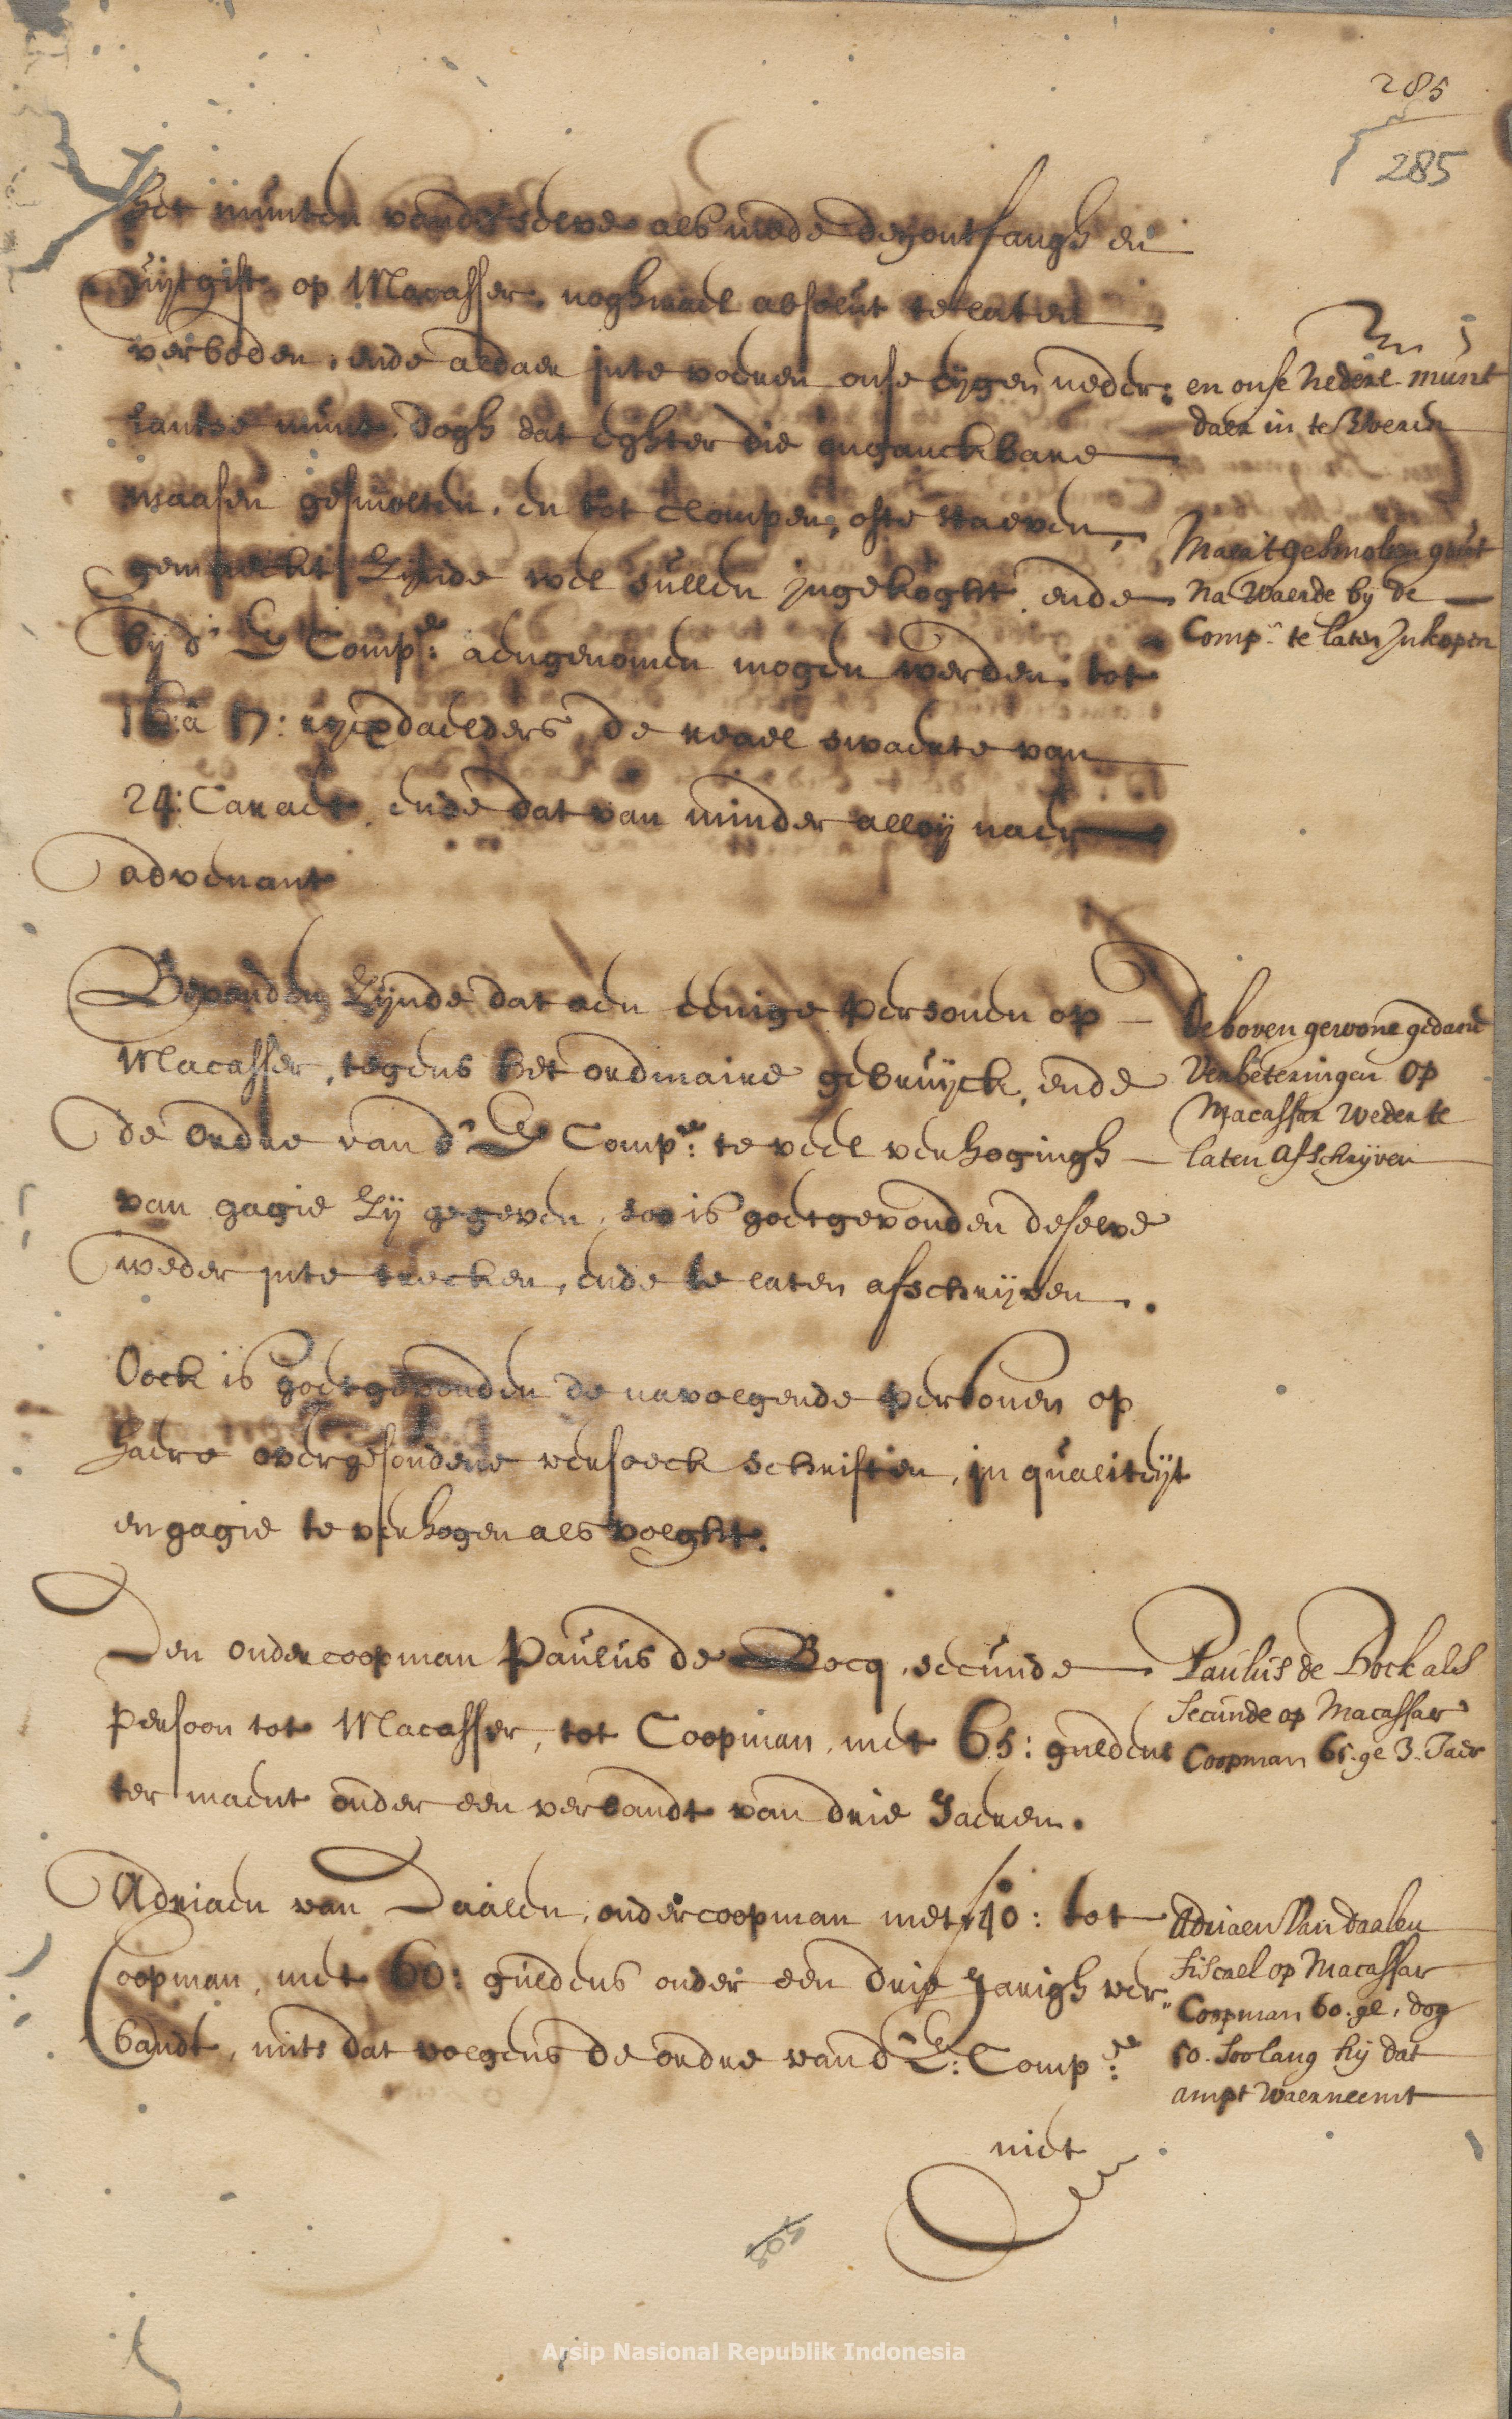 285
285
het munten vandeselve als mede den ontfangh en
uijtgift op Macasser, noghmael absolut te laten
verboden, ende aldaer inte voeren onse eijgen neder:
lantse munt, dogh dat eghter die onganckbare
maasen gesmolten, en tot clompen, ofte staeven,
gemaeckt zijnde wel sullen ingekoght, ende
bij d' E Comp:e aengenomen mogen werden, tot
16: a 17: rijxdaelders de reael swaerte van
24: Caraet, ende dat van minder alloij naer
advenant
en onse nederl. munt
daer in te voeren
Maer 't gesmolten gout
na waerde bij de
Comp:e te laten Inkopen
Bevonden zijnde dat aen eenige personen op
Macasser, tegens het ordinaire gebruijck, ende
de ordre van d' E Comp:e te veel verhogingh
van gagie zij gegeven, soo is goetgevonden deselve
weder inte trecken, ende te laten afschrijven.
De boven gewone gedane
verbeteringen op
Macassar weder te
laten afschrijven
Oock is goetgevonden de navolgende personen op
haere overgesondene versoeck schriften, in qualiteijt
en gagie te verhogen als volght.
Den ondercoopman Paulus de Bocq, secunde
persoon tot Macasser, tot Coopman, met 65: guldens
ter maent onder een verbandt van drie Jaeren.
Paulus de Bock als
Secunde op Macassar
Coopman 65. gl 3. Jaer
Adriaen van Daalen, ondercoopman met 40: tot
Coopman, met 60: guldens onder een drie Jarigh ver„
bandt, mits dat volgens de ordre van d' E: Comp:e
Adriaen Van daalen
fiscael op Macassar
Coopman 60. gl, dog
50. soolang hij dat
ampt waerneemt
niet
505
Arsip Nasional Republik Indonesia